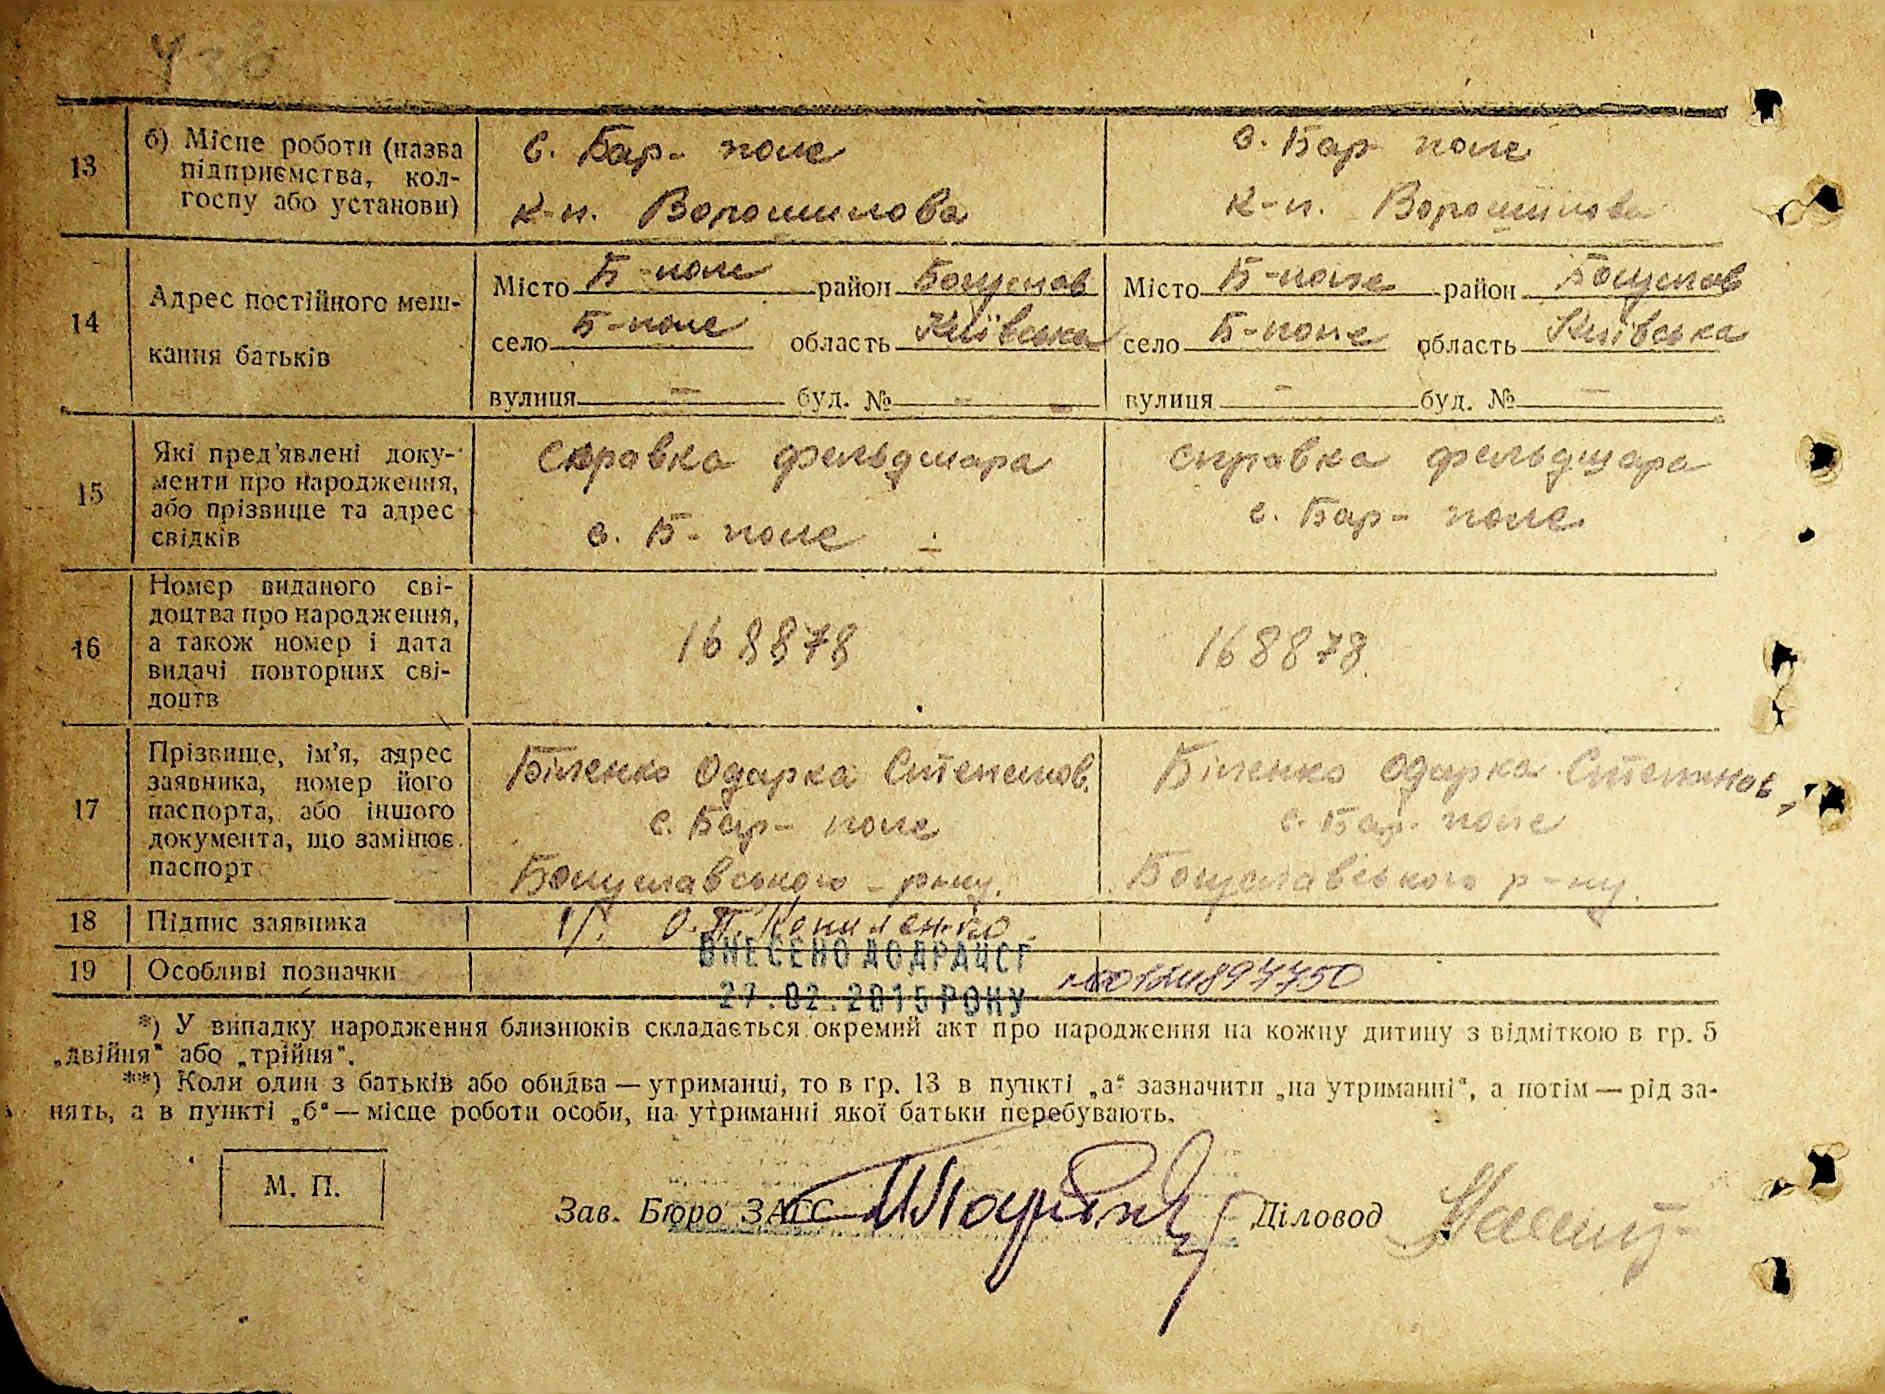 436
13
б) Місце роботи (назва
підприємства, кол-
госпу або установи)
с. Бар- поле
к-п. Ворошилова
с. Бар поле
к-п. Ворошилова
14
Адрес постійного меш-
кання батьків
Місто Б-поле район Богуслав
село Б-поле область Київська
вулиця — буд. № -
Місто Б-поле район Богуслав
село Б-поле область Київська
вулиця - буд. № —
15
Які пред'явлені доку-
менти про народження,
або прізвище та адрес
свідків
справка фельдшара
с. Б- поле
справка фельдшара
с. Бар- поле
16
Номер виданого сві-
доцтва про народження,
а також номер і дата
видачі повторних сві-
доцтв
168878
168878
17
Прізвище, ім'я, адрес
заявника, номер його
паспорта, або іншого
документа, що замінює
паспорт
Біленко Одарка Степанов.
с. Бар- поле
Богуславського р-ну.
Біленко Одарка Степанов
с. Бар- поле
Богуславського р-ну.
18
Підпис заявника
О.
19
Особливі позначки
ВНЕСЕНО ДО ДРАЦСГ
27.02.2015 РОКУ
*) У випадку народження близнюків складається окремий акт про народження на кожну дитину з відміткою в гр. 5
„двійня" або „трійня".
**) Коли один з батьків або обидва — утриманці, то в гр. 13 в пункті „а" зазначити „на утриманні", а потім — рід за-
нять, а в пункті „б" — місце роботи особи, на утриманні якої батьки перебувають.
М. П.
Зав. Бюро ЗАГС
Діловод